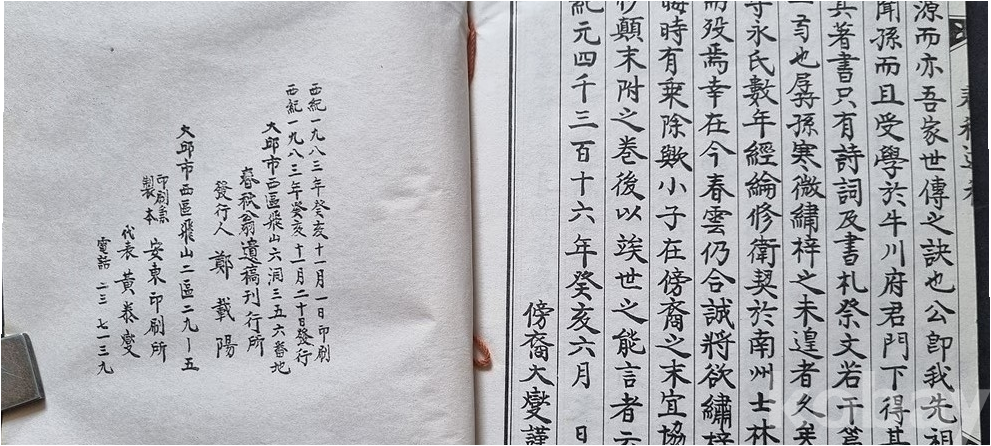 源而亦吾家世傳之訣也公卽我先祖
聞孫而且受學於牛川府君門下得其
其著書只有詩詞及書札祭文若干篇
也孱孫寒微繡梓之未遑者久矣
守永氏數年經綸修衛契於南州士林
而歿焉幸在今春雲仍合誠將欲繡梓
時有乘除歟小子在傍裔之末宜協
顚末附之卷後以竢世之能言者云
紀元四千三百十六年癸亥六月 日
傍裔大燮謹
西紀一九八三年癸亥十一月一日印刷
西紀一九八三年癸亥十一月二十日發行
大邱市西區飛山六洞三五六番地
春秋翁遺稿刊行所
發行人 鄭載陽
大邱市西區飛山二區二九ー五
印刷兼製本 安東印刷所
代表 黃泰燮
電話 二三、七一三九